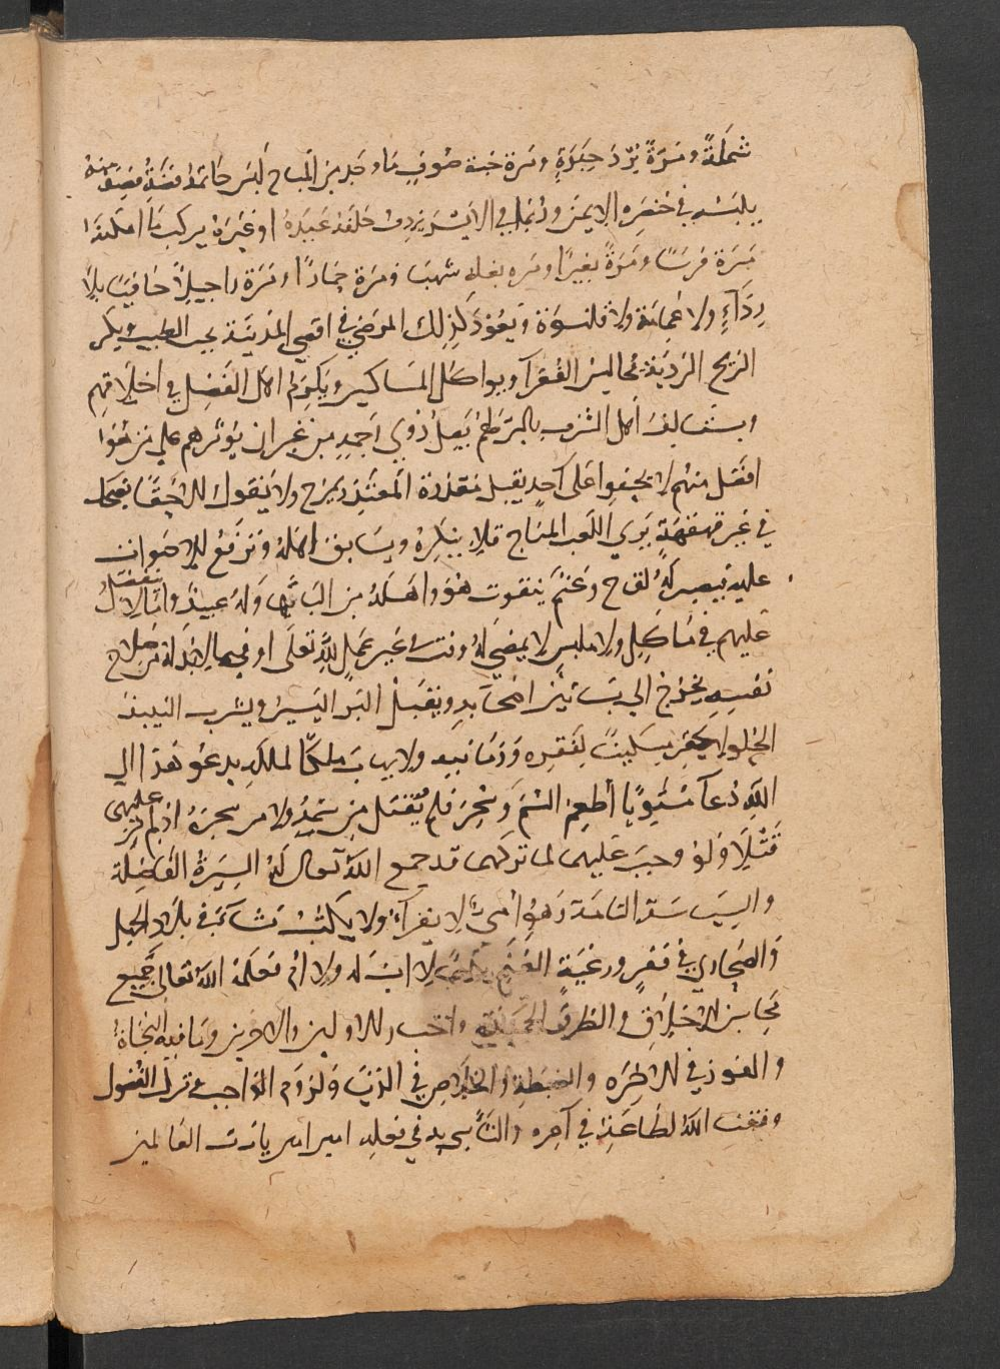 شملةً ومرّةً بُردَ حِبَرَةٍ ومرة جبة صُوفٍ ما وجد من المباح لَبس خاتمه فضةٌ فصه منه
يلبسه في خنصره الايمن وربما في الايسر يردف خلفه عبده او غيره يركب ما امكنه
مرة فرسًا ومرّةً بعيرًا ومره بغله شهبا ومرة حمارًا ومَرّة راجلاً حَافيًا بلا
رِدَآءٍ ولا عِمامة ولا قلنسوة ويَعُود كذلك المرضى في اقصى المدينة يحب الطيب ويكره
الريح الردية يُجالس الفقرآ ويواكل المساكين ويكرم اهل الفضل في اخلاقهم
ويستالف اهل الشرف بالبر لهم يَصِلُ ذوي رحمه من غير ان يؤثرهم على من هُوَ
افضل منهم لا يجفوا على احدٍ يقبل معذرة المعتذر يمزح ولا يقول الا حقًا يضحك
في غير قهقهةٍ يَرى اللعب المباح فلا ينكره ويسَابق اهله وترفع الاصوات
عليه فيصبر لَهُ لقاح وغنمٌ يتقوت هُوَ واهلهُ من البانها وَلَهُ عبيدٌ وامآ لا يتفضل
عليهم في مَاكلٍ ولا ملبسٍ لا يمضي لهُ وقت في غير عَملٍ للهِ تعلى او فيما لا بد له من صلاح
نفسِهِ يخرج الى بساتين اصحابه ويقبل البر اليسير ويشرب النبيذ
الحُلو لا يحقر مسكينًا لفقره وزمانته ولا يهاب ملكًا لملكه يدعو هذا الى
اللهِ دُعآ مستويًا أُطعِمَ السُّمَ وسُحِرَ فلم يقتل من سَمّهُ ولا من سحرهُ اذ لم ير عليهما
قَتْلاً ولَوْ وجبَ عليهما لما تركهما قد جمع الله تعالى لهُ السِيَرةُ الفَاضِلة
والسياسة التامة وَهُوَ أُمي لا يقرآ ولا يكتبُ نَشَأَ في بلاد الجهل
وَالصَحَاري في فقرٍ ورعيةِ الغنمِ يتيمًا لا اب له ولا ام فعلمهُ اللهُ تعالى جَميع
محاسن الاخلاق والطرق الحَميدة واخبار الاولين والاخرين وما فيه النجَاة
والفوز في الاخره والغبطة والخلاص في الدنيا وَلزوم الواجب وترك الفُضول
وفقنا اللهُ لطاعتهِ في آمره والتأسي به في فعله امين امين يا رب العالمين